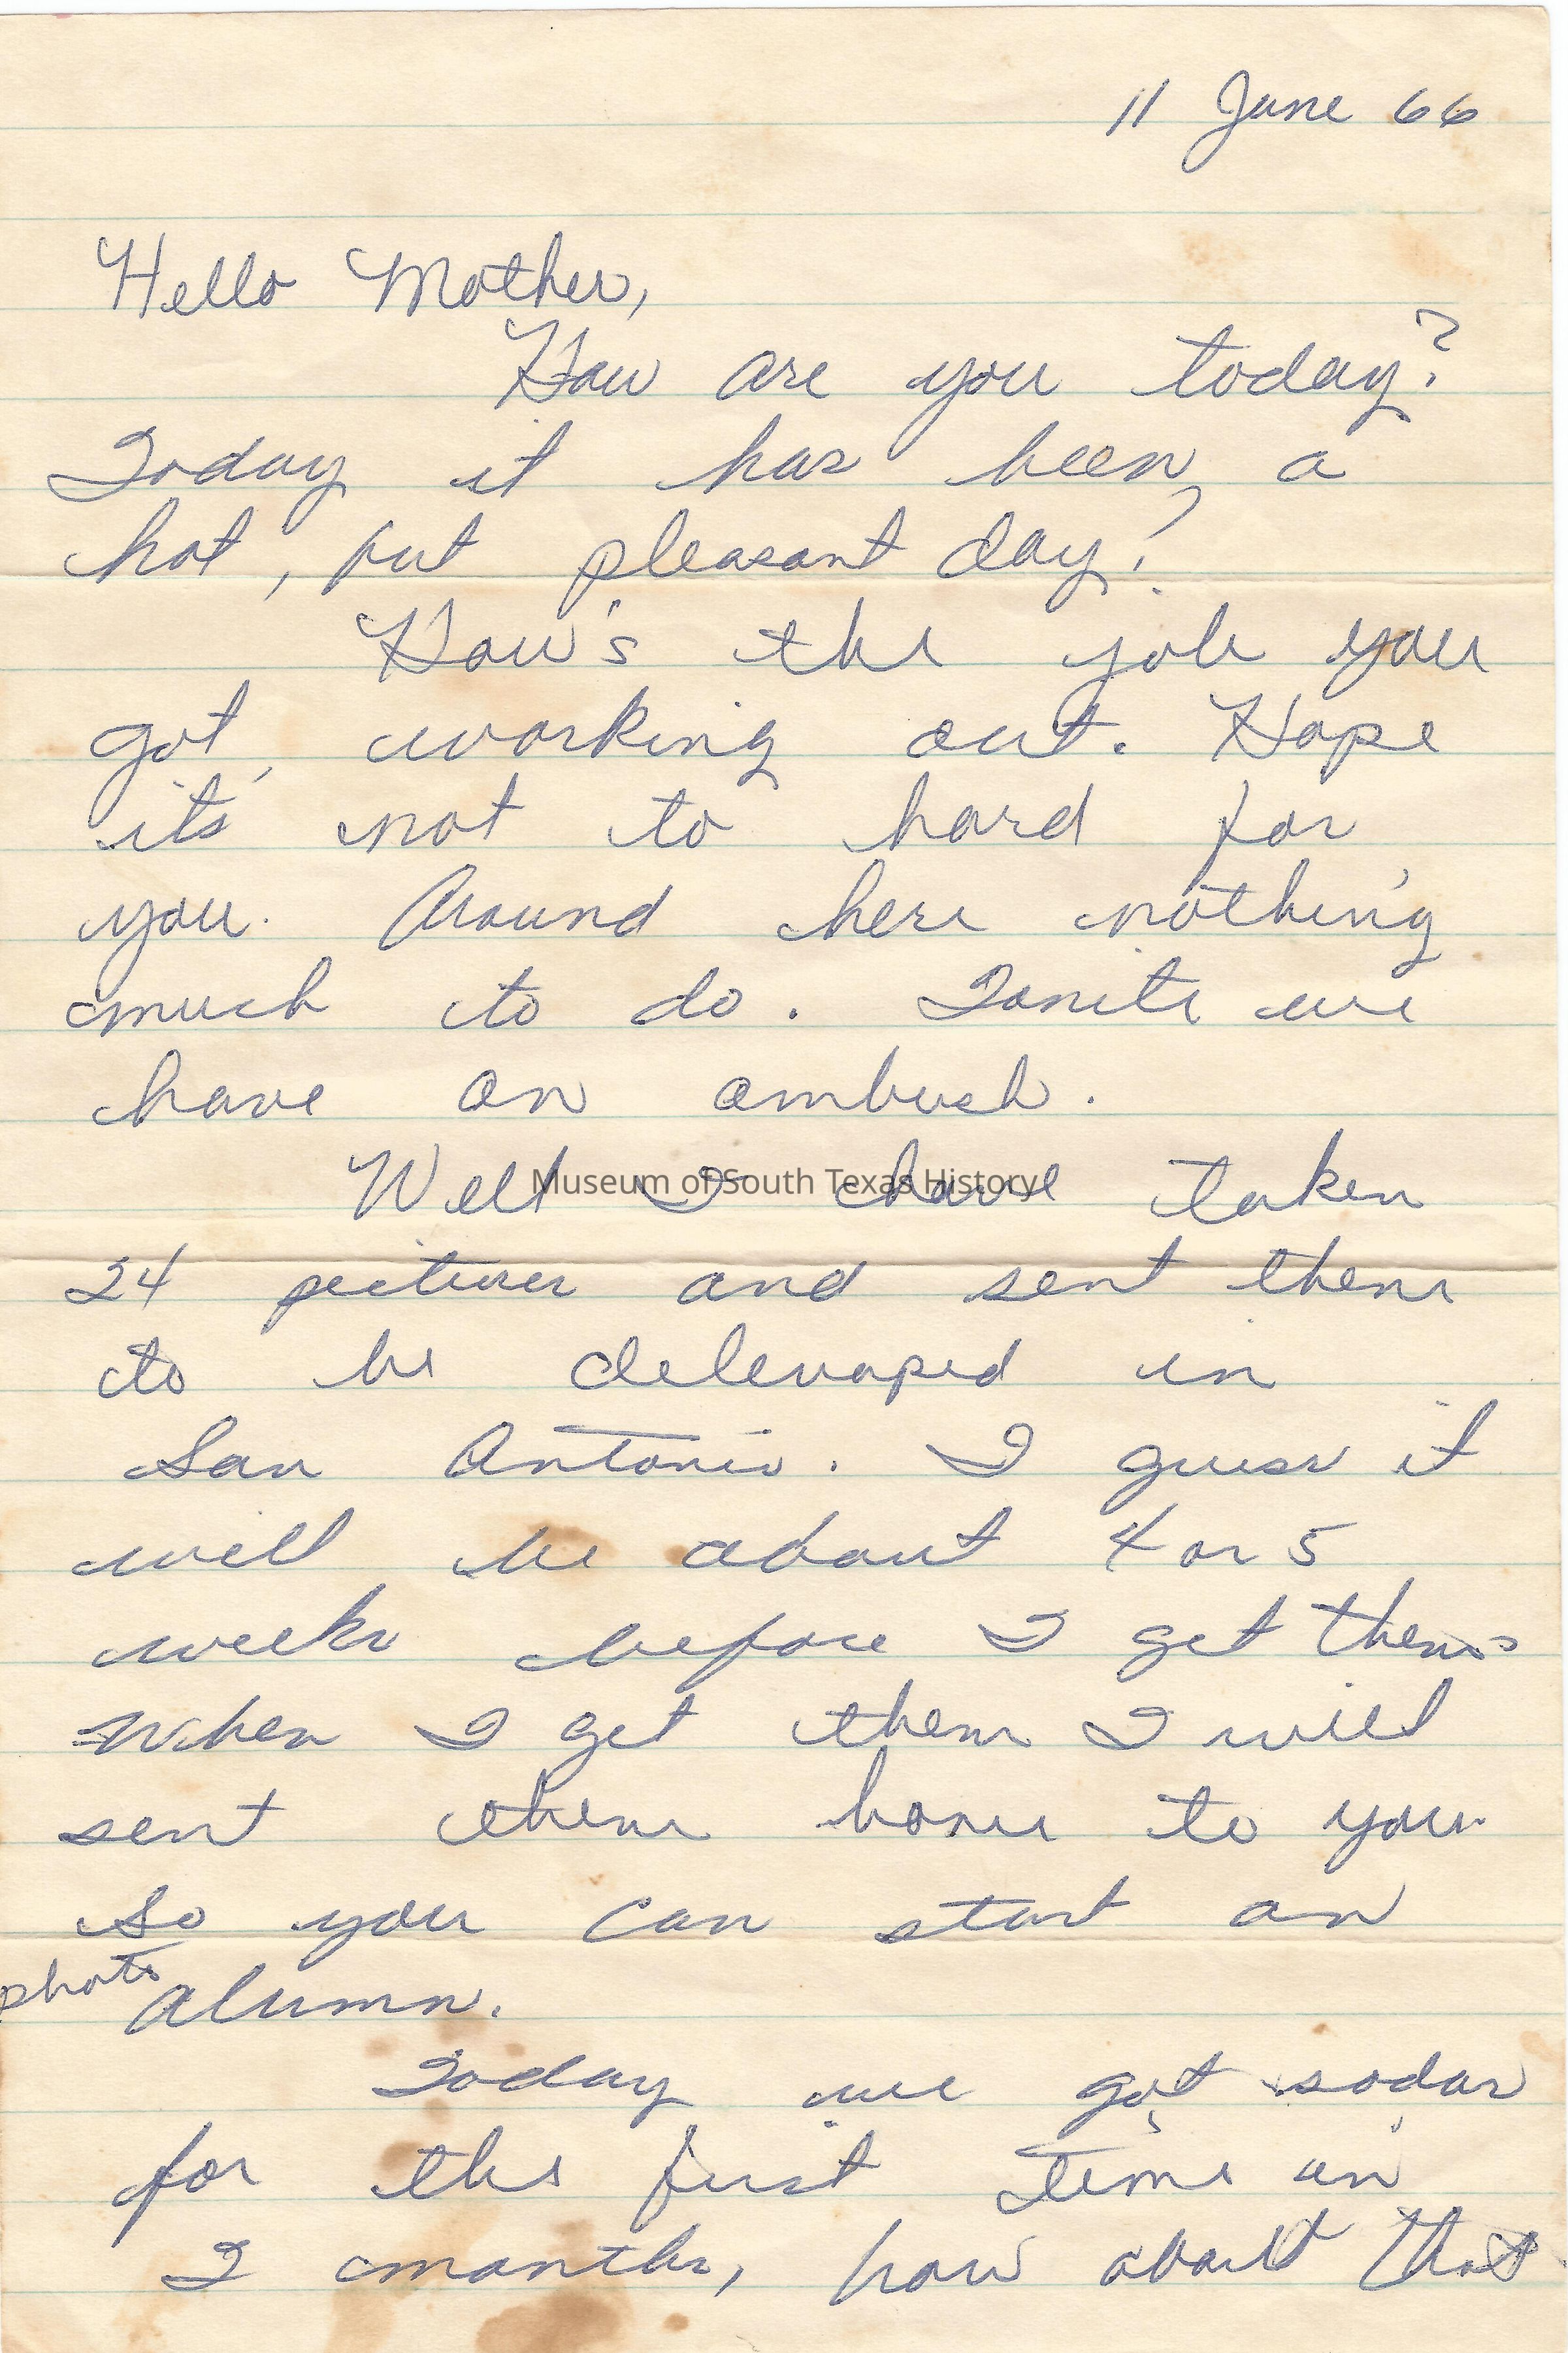 11 June 66
Hello Mother,
How are you today?
Today it has been a
hot, put pleasant day?
How's the job you
got, working out. Hope
it's not to hard for
you. Around here nothing
much to do. Tonite we
have an ambush.
Well I have taken
Museum of South Texas History
24 pictures and sent them
to be delevoped in
San Antonio. I guess it
will be about 4 or 5
weeks before I get them.
When I get them I will
sent them home to you.
So you can start an
photo alumn.
Today we got sodas
for the first time in
2 months, how about that.